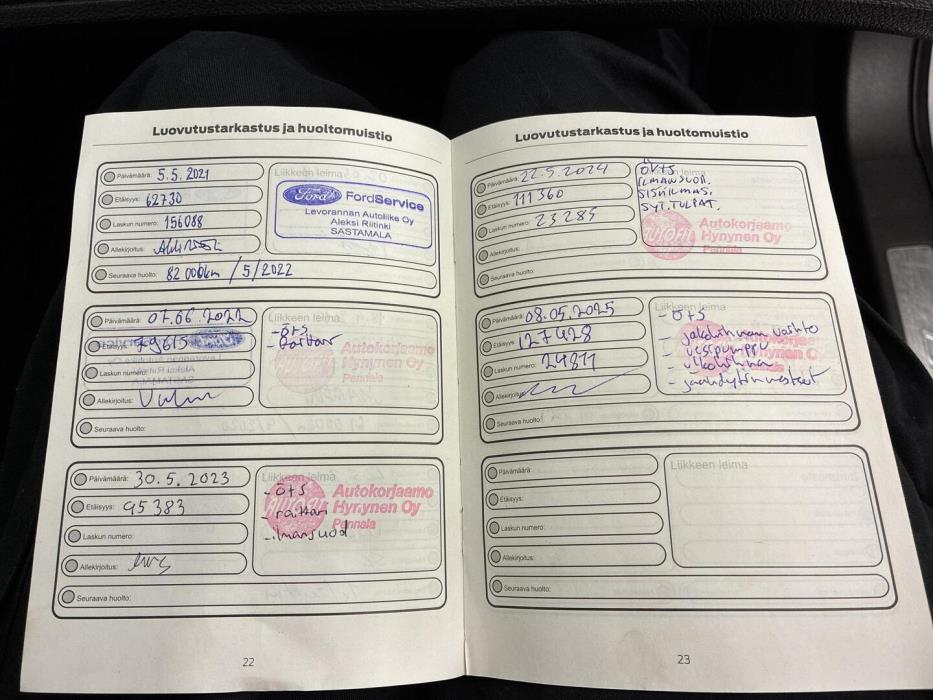 Luovutustarkastus ja huoltomuistio
Päivämäärä: 5.5.2021
Etäisyys: 62730
Laskun numero: 156088
Allekirjoitus:
Seuraava huolto: 82 000km / 5/2022
Liikkeen leima
Ford FordService
Levorannan Autoliike Oy
Aleksi Riitinki
SASTAMALA
Päivämäärä: 07.06.2022
Etäisyys: 79615
Laskun numero:
Allekirjoitus:
Seuraava huolto:
Liikkeen leima
- ÖTS
Autokorjaamo
Hynynen Oy
Pennala
Päivämäärä: 30.5.2023
Etäisyys: 95383
Laskun numero:
Allekirjoitus:
Seuraava huolto:
Liikkeen leima
- ÖTS
- raitari
- ilmansuod
AUTOFIT
Autokorjaamo
Hynynen Oy
Pennala
22
Luovutustarkastus ja huoltomuistio
Päivämäärä: 22.5.2024
Etäisyys: 111360
Laskun numero: 23285
Allekirjoitus:
Seuraava huolto:
ÖTS
ILMANSUOD.
SISÄILMAS.
SYT.TULPAT.
AUTOFIT
Autokorjaamo
Hynynen Oy
Pennala
Päivämäärä: 08.05.2025
Etäisyys: 127428
Laskun numero: 24811
Allekirjoitus:
Seuraava huolto:
Liikkeen leima
- ÖTS
- jakohihnan vaihto
- vesipumppu
- ulkohihna
- jäähdytinnesteet
Päivämäärä:
Etäisyys:
Laskun numero:
Allekirjoitus:
Seuraava huolto:
Liikkeen leima
23